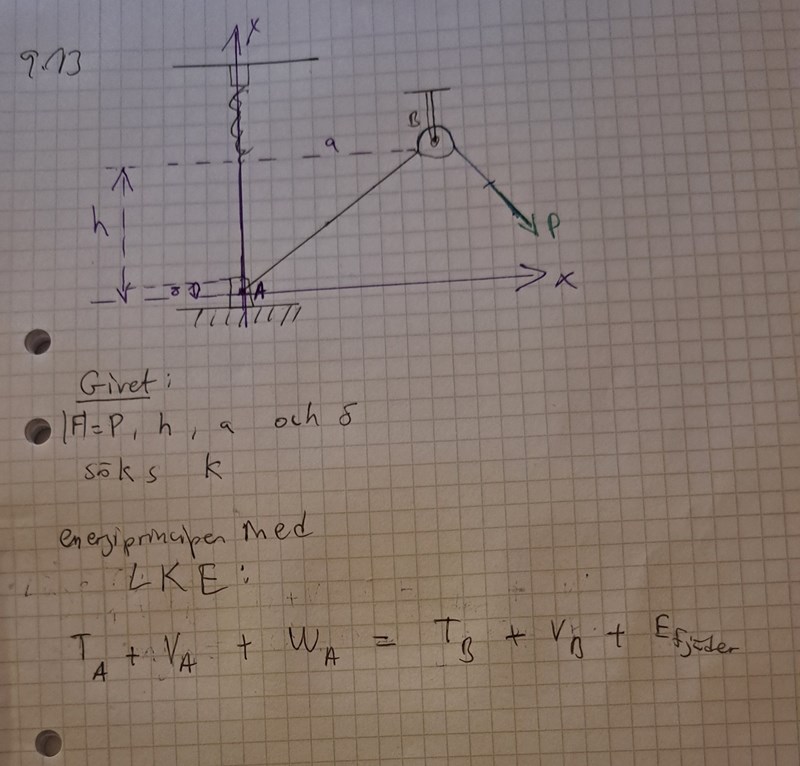 9.13
x
B
a
h
P
δ
A
x
Givet:
|F|=P, h, a och δ
söks k
energiprincipen med
LKE:
T_A + V_A + W_A = T_B + V_B + E_fjäder